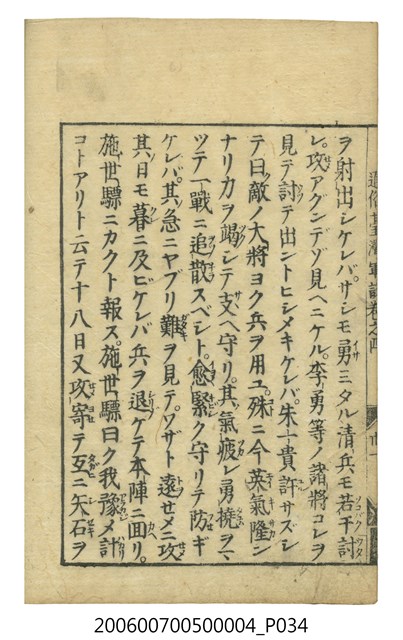 ヲ射出シケレバ。サシモ勇ミタル清兵モ若干討
レ。攻アグンデゾ見ヘニケル。李勇等ノ諸將コレヲ
見テ討テ出ントヒシメキケレバ。朱一貴許サズシ
テ曰敵ノ大將ヨク兵ヲ用ユ。殊ニ今英氣隆ン
ナリカヲ竭シテ支ヘ守リ。其氣疲レ勇撓ヲマ
ツテ一戰ニ追散スベシト。愈緊ク守リテ防ギ
ケレバ。其急ニヤブリ難ヲ見テ。ワザト遠セメニ攻
其日モ暮ニ及ビケレバ兵ヲ退ケテ本陣ニ回リ。
施世驃ニカクト報ス。施世驃曰ク我豫メ計
コトアリト云テ十八日又攻寄テ互ニ矢石ヲ
通俗臺灣軍談卷之四
200600700500004_P034